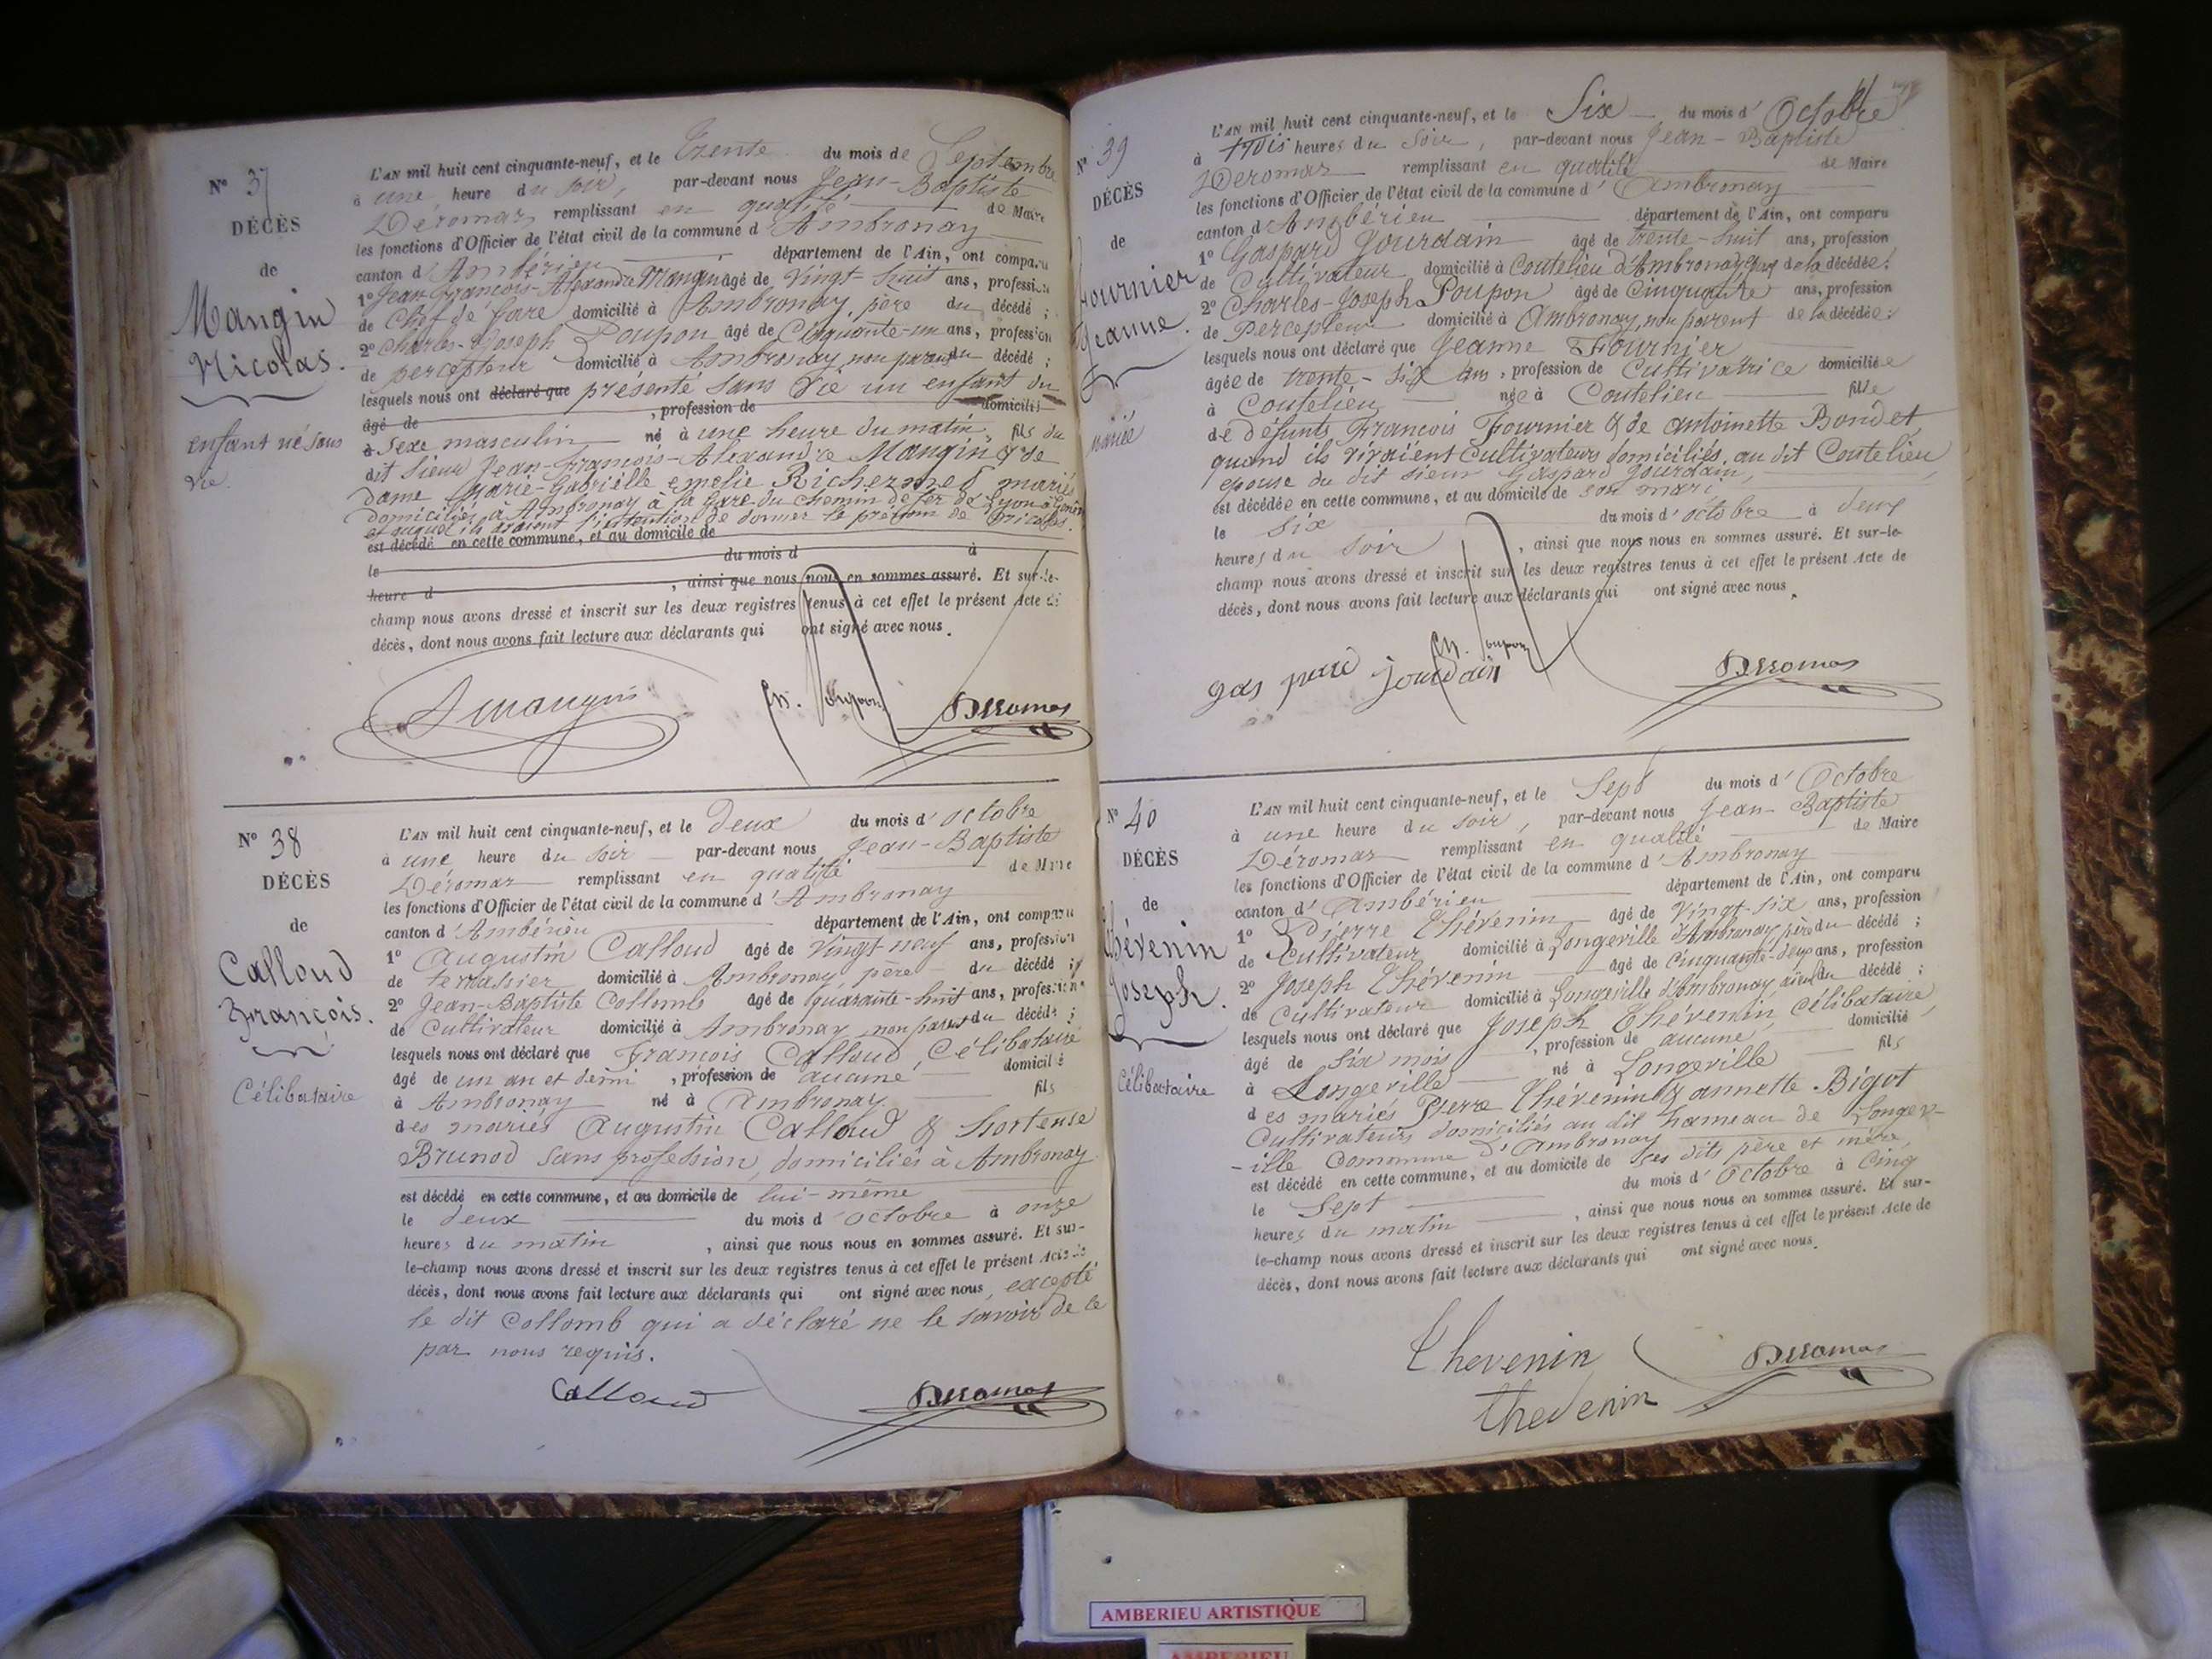 N° 37
DÉCÈS
de
Mangin
Nicolas.
enfant né sans
vie.
L'AN mil huit cent cinquante-neuf, et le trente du mois de Septembre
à une heure du soir, par-devant nous Jean-Baptiste
Déromas remplissant en qualité de Maire
les fonctions d'Officier de l'état civil de la commune d'Ambronay
canton d'Ambérieu département de l'Ain, ont comparu
1° Jean-François-Alexandre Mangin âgé de vingt-huit ans, profession
de Chef de Gare domicilié à Ambronay, père du décédé ;
2° Charles-Joseph Poupon âgé de Cinquante-un ans, profession
de percepteur domicilié à Ambronay, non parent du décédé ;
lesquels nous ont déclaré que présenté sans vie un enfant du
âgé de , profession de domicilié
à Sexe masculin né à une heure du matin, fils du
dit Sieur Jean-François-Alexandre Mangin & de
dame Marie-Gabrielle emelie mariés
domiciliés à Ambronay à la Gare du chemin de fer de Lyon à Genève
et auquel ils avaient l'intention de donner le prénom de Nicolas.
est décédé en cette commune, et au domicile de
le du mois d à
heure d , ainsi que nous nous en sommes assuré. Et sur-le-
champ nous avons dressé et inscrit sur les deux registres tenus à cet effet le présent Acte de
décès, dont nous avons fait lecture aux déclarants qui ont signé avec nous.
Amangin Ch. Poupon Deromas
N° 38
DÉCÈS
de
Calloud
François.
Célibataire
L'AN mil huit cent cinquante-neuf, et le deux du mois d'octobre
à une heure du soir par-devant nous Jean-Baptiste
Déromas remplissant en qualité de Maire
les fonctions d'Officier de l'état civil de la commune d'Ambronay
canton d'Ambérieu département de l'Ain, ont comparu
1° Augustin Calloud âgé de vingt neuf ans, profession
de terrassier domicilié à Ambronay, père du décédé ;
2° Jean-Baptiste Collomb âgé de quarante-huit ans, profession
de Cultivateur domicilié à Ambronay, non parent du décédé ;
lesquels nous ont déclaré que François Calloud, Célibataire
âgé de un an et demi , profession de aucune domicilié
à Ambronay né à Ambronay fils
des mariés Augustin Calloud & hortense
Brunod sans profession, domiciliés à Ambronay
est décédé en cette commune, et au domicile de lui-même
le deux du mois d'octobre à onze
heures du matin , ainsi que nous nous en sommes assuré. Et sur-
le-champ nous avons dressé et inscrit sur les deux registres tenus à cet effet le présent Acte de
décès, dont nous avons fait lecture aux déclarants qui ont signé avec nous, excepté
le dit Collomb qui a déclaré ne le savoir de ce
par nous requis.
Calloud Deromas
N° 39
DÉCÈS
de
Fournier
Jeanne.
mariée
L'AN mil huit cent cinquante-neuf, et le Six du mois d'Octobre
à trois heures du Soir, par-devant nous Jean-Baptiste
Deromas remplissant en qualité de Maire
les fonctions d'Officier de l'état civil de la commune d'Ambronay
canton d'Ambérieu département de l'Ain, ont comparu
1° Gaspard Jourdain âgé de trente-huit ans, profession
de Cultivateur domicilié à Coutelieu d'Ambronay, de la décédée ;
2° Charles-Joseph Poupon âgé de Cinquante ans, profession
de Percepteur domicilié à Ambronay, non parent de la décédée ;
lesquels nous ont déclaré que Jeanne Fournier
âgée de trente-six ans, profession de Cultivatrice domiciliée
à Coutelieu née à Coutelieu fille
de défunts François Fournier & de antoinette Bondet
quand ils vivaient Cultivateurs domiciliés au dit Coutelieu
épouse du dit sieur Gaspard Jourdain,
est décédée en cette commune, et au domicile de son mari
le six du mois d'octobre à deux
heures du soir , ainsi que nous nous en sommes assuré. Et sur-le-
champ nous avons dressé et inscrit sur les deux registres tenus à cet effet le présent Acte de
décès, dont nous avons fait lecture aux déclarants qui ont signé avec nous.
gas pard jourdain Ch. Poupon Deromas
N° 40
DÉCÈS
de
Thévenin
Joseph.
Célibataire
L'AN mil huit cent cinquante-neuf, et le Sept du mois d'Octobre
à une heure du soir, par-devant nous Jean-Baptiste
Déromas remplissant en qualité de Maire
les fonctions d'Officier de l'état civil de la commune d'Ambronay
canton d'Ambérieu département de l'Ain, ont comparu
1° Pierre Thévenin âgé de vingt-six ans, profession
de Cultivateur domicilié à Longeville d'Ambronay père du décédé ;
2° Joseph Thévenin âgé de Cinquante-deux ans, profession
de Cultivateur domicilié à Longeville d'Ambronay, aïeul du décédé ;
lesquels nous ont déclaré que Joseph Thévenin, Célibataire,
âgé de six mois , profession de aucune domicilié
à Longeville né à Longeville fils
des mariés Pierre Thévenin & annette Bigot
Cultivateurs domiciliés au dit hameau de Longev-
-ille Commune d'Ambronay
est décédé en cette commune, et au domicile de ses dits père et mère,
le Sept du mois d'Octobre à Cinq
heures du matin , ainsi que nous nous en sommes assuré. Et sur-
le-champ nous avons dressé et inscrit sur les deux registres tenus à cet effet le présent Acte de
décès, dont nous avons fait lecture aux déclarants qui ont signé avec nous.
Thevenin Deromas
thevenin
AMBERIEU ARTISTIQUE
AMBERIEU